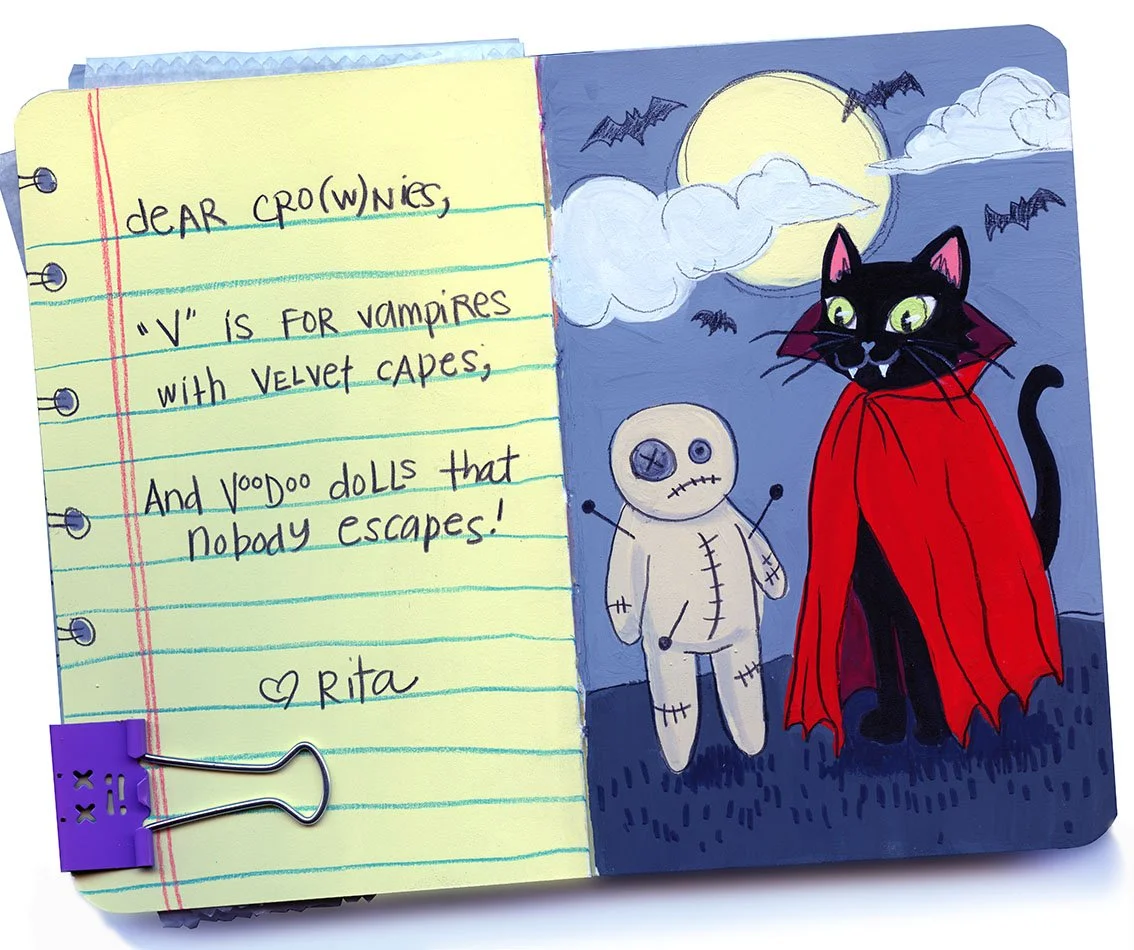 deAR CRO(W)Nies,
"V" is FOR vampiRes
with VELVet CAPes;
And VooDoo doLLs that
nobody escapes!
♡ Rita